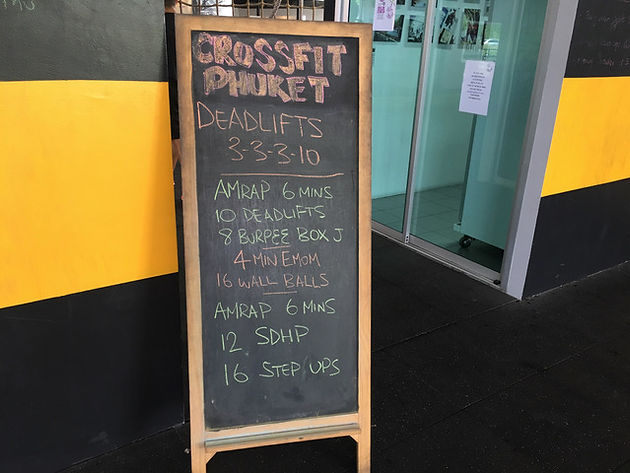 CROSSFIT
PHUKET
DEADLIFTS
3-3-3-10
AMRAP 6 MINS
10 DEADLIFTS
8 BURPEE BOX J
4 MIN EMOM
16 WALL BALLS
AMRAP 6 MINS
12 SDHP
16 STEP UPS